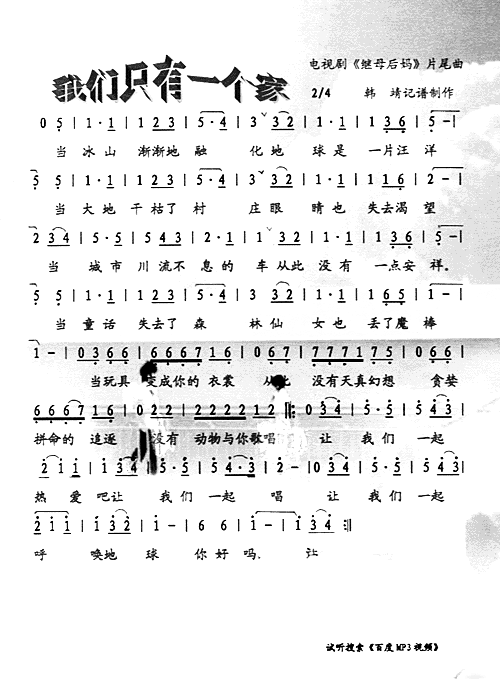 我们只有一个家
电视剧《继母后妈》片尾曲
2/4 韩 靖记谱制作
0 5 | 1·1 | 1 2 3 | 5·4 | 3 3 2 | 1·1 | 1 3 6 | 5 — |
当 冰山 渐渐地 融 化地 球是 一片汪 洋
5 5 | 1·1 | 1 2 3 | 5·4 | 3 3 2 | 1·1 | 1 3 6 | 5 — |
当 大地 干枯了 村 庄眼 睛也 失去渴 望
2 3 4 | 5·5 | 5 4 3 | 2·1 | 1 2 3 | 4·4 | 1 3 6 | 5 — |
当 城市 川流不 息的 车从此 没有 一点安 祥。
5 5 | 1·1 | 1 2 3 | 5·4 | 3 3 2 | 1·1 | 1 6 5 | 1 — |
当 童话 失去了 森 林仙 女也 丢了魔 棒
1 — | 0 3 6 6 | 6 6 6 7 1 6 | 0 6 7 1 | 7 7 7 1 7 5 | 0 6 1 2 |
当玩具 变成你的 衣裳 从此 没有天真幻想 贪婪
6 6 6 6 7 1 6 | 0 6 6 6 | 2 2 2 2 1 2 :|| 0 3 · 5 | 5 4 3 4 |
拼命的 追逐 没有 动物与你歌唱 让 我们 一起
2 1 1 | 1 3 4 | 5·5 | 5 4 3 4 | 5 — | 1 3 4 | 5·5 | 5 4 3 4 |
热 爱 吧让 我们 一起 唱 让 我们 一起
2 1 1 1 | 1 2 3 | 1 2 | 1 — | 6 6 | 1 — | 0 1 3 4 :||
呼 唤地 球 你好 吗， 让
试听搜索《百度MP3视频》